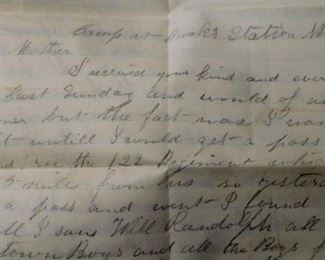 Camp at Brooks Station
Mother
I received your kind and ever
last Sunday and would of
but the fact was I
untill I would get a pass
see the 122 Regiment
miles from us so yesterd
a pass and went I found
I saw Will Randolph all
town Boys and all the Boys